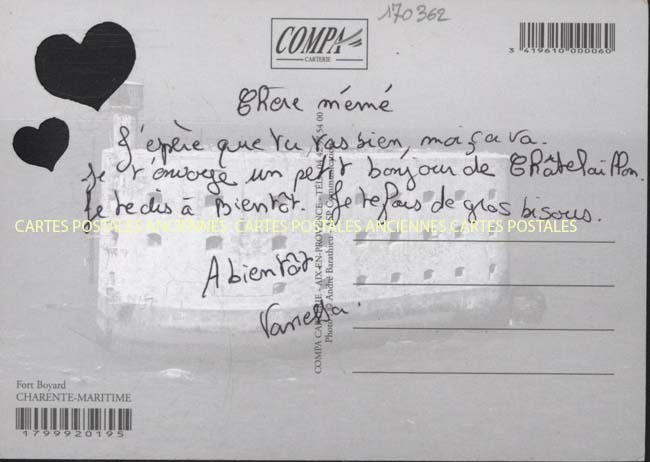 170362
COMPA
CARTERIE
3 419610 000060
Chère mémé
J'épère que tu vas bien, moi ça va.
Je t'envoye un petit bonjour de Châtelaillon.
Je te dis à Bientôt. Je te fais de gros bisous.
CARTES POSTALES ANCIENNES CARTES POSTALES ANCIENNES CARTES POSTALES
A bientôt
Vanessa.
COMPA CARTERIE - AIX-EN-PROVENCE - TÉL. 54 00
Photo © André Barathieu Communication
Fort Boyard
CHARENTE-MARITIME
1799920195